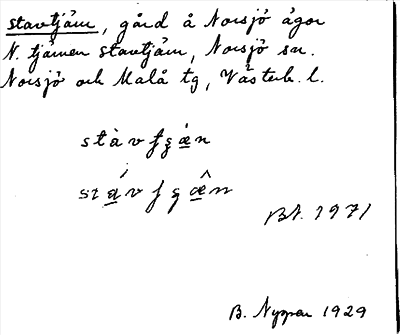 Stavtjärn, gård å Norsjö ägor
N. tjärnen Stavtjärn, Norsjö sn.
Norsjö och Malå tg, Västerb. l.
stàvfgæ̀n
stávfgæ̂n
BN. 1971
B. Nyman 1929